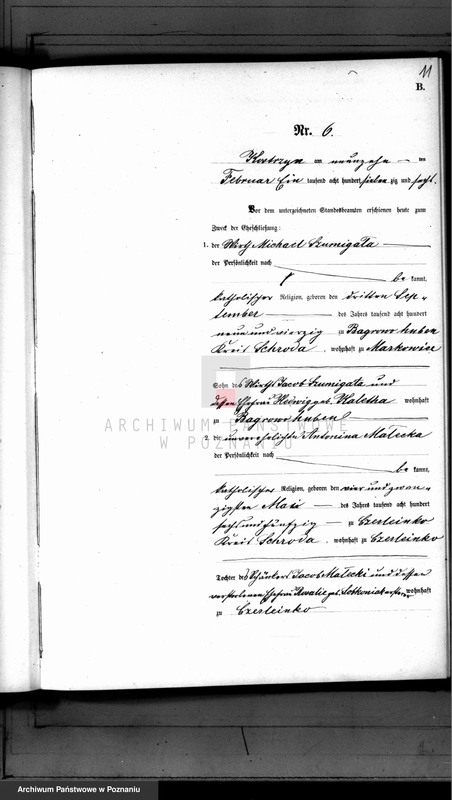 11
B.
Nr. 6.
Kostrzyn am neunzehn ten
Februar Ein tausend acht hundert siebenzig und sechs.
Vor dem unterzeichneten Standesbeamten erschienen heute zum
Zweck der Eheschließung:
1. der Wirth Michael Szumigata
der Persönlichkeit nach
be kannt,
katholischer Religion, geboren den dritten Sep-
tember des Jahres tausend acht hundert
neun und vierzig zu Bagrowo huben
Kreis Schroda, wohnhaft zu Markowice
Sohn des Wirths Jacob Szumigata und
dessen Ehefrau Hedwig geb. wohnhaft
zu Bagrowo huben
ARCHIWUM PAŃSTWOWE
W POZNANIU
2. die unverehelichte Antonina Małecka
der Persönlichkeit nach
be kannt,
katholischer Religion, geboren den vier und zwan-
zigsten Mai des Jahres tausend acht hundert
sechs und fünfzig zu Czerleinko
Kreis Schroda, wohnhaft zu Czerleinko
Tochter des Schänkers Jacob Małecki und dessen
verstorbenen Ehefrau Rosalie geb. wohnhaft
zu Czerleinko
Archiwum Państwowe w Poznaniu